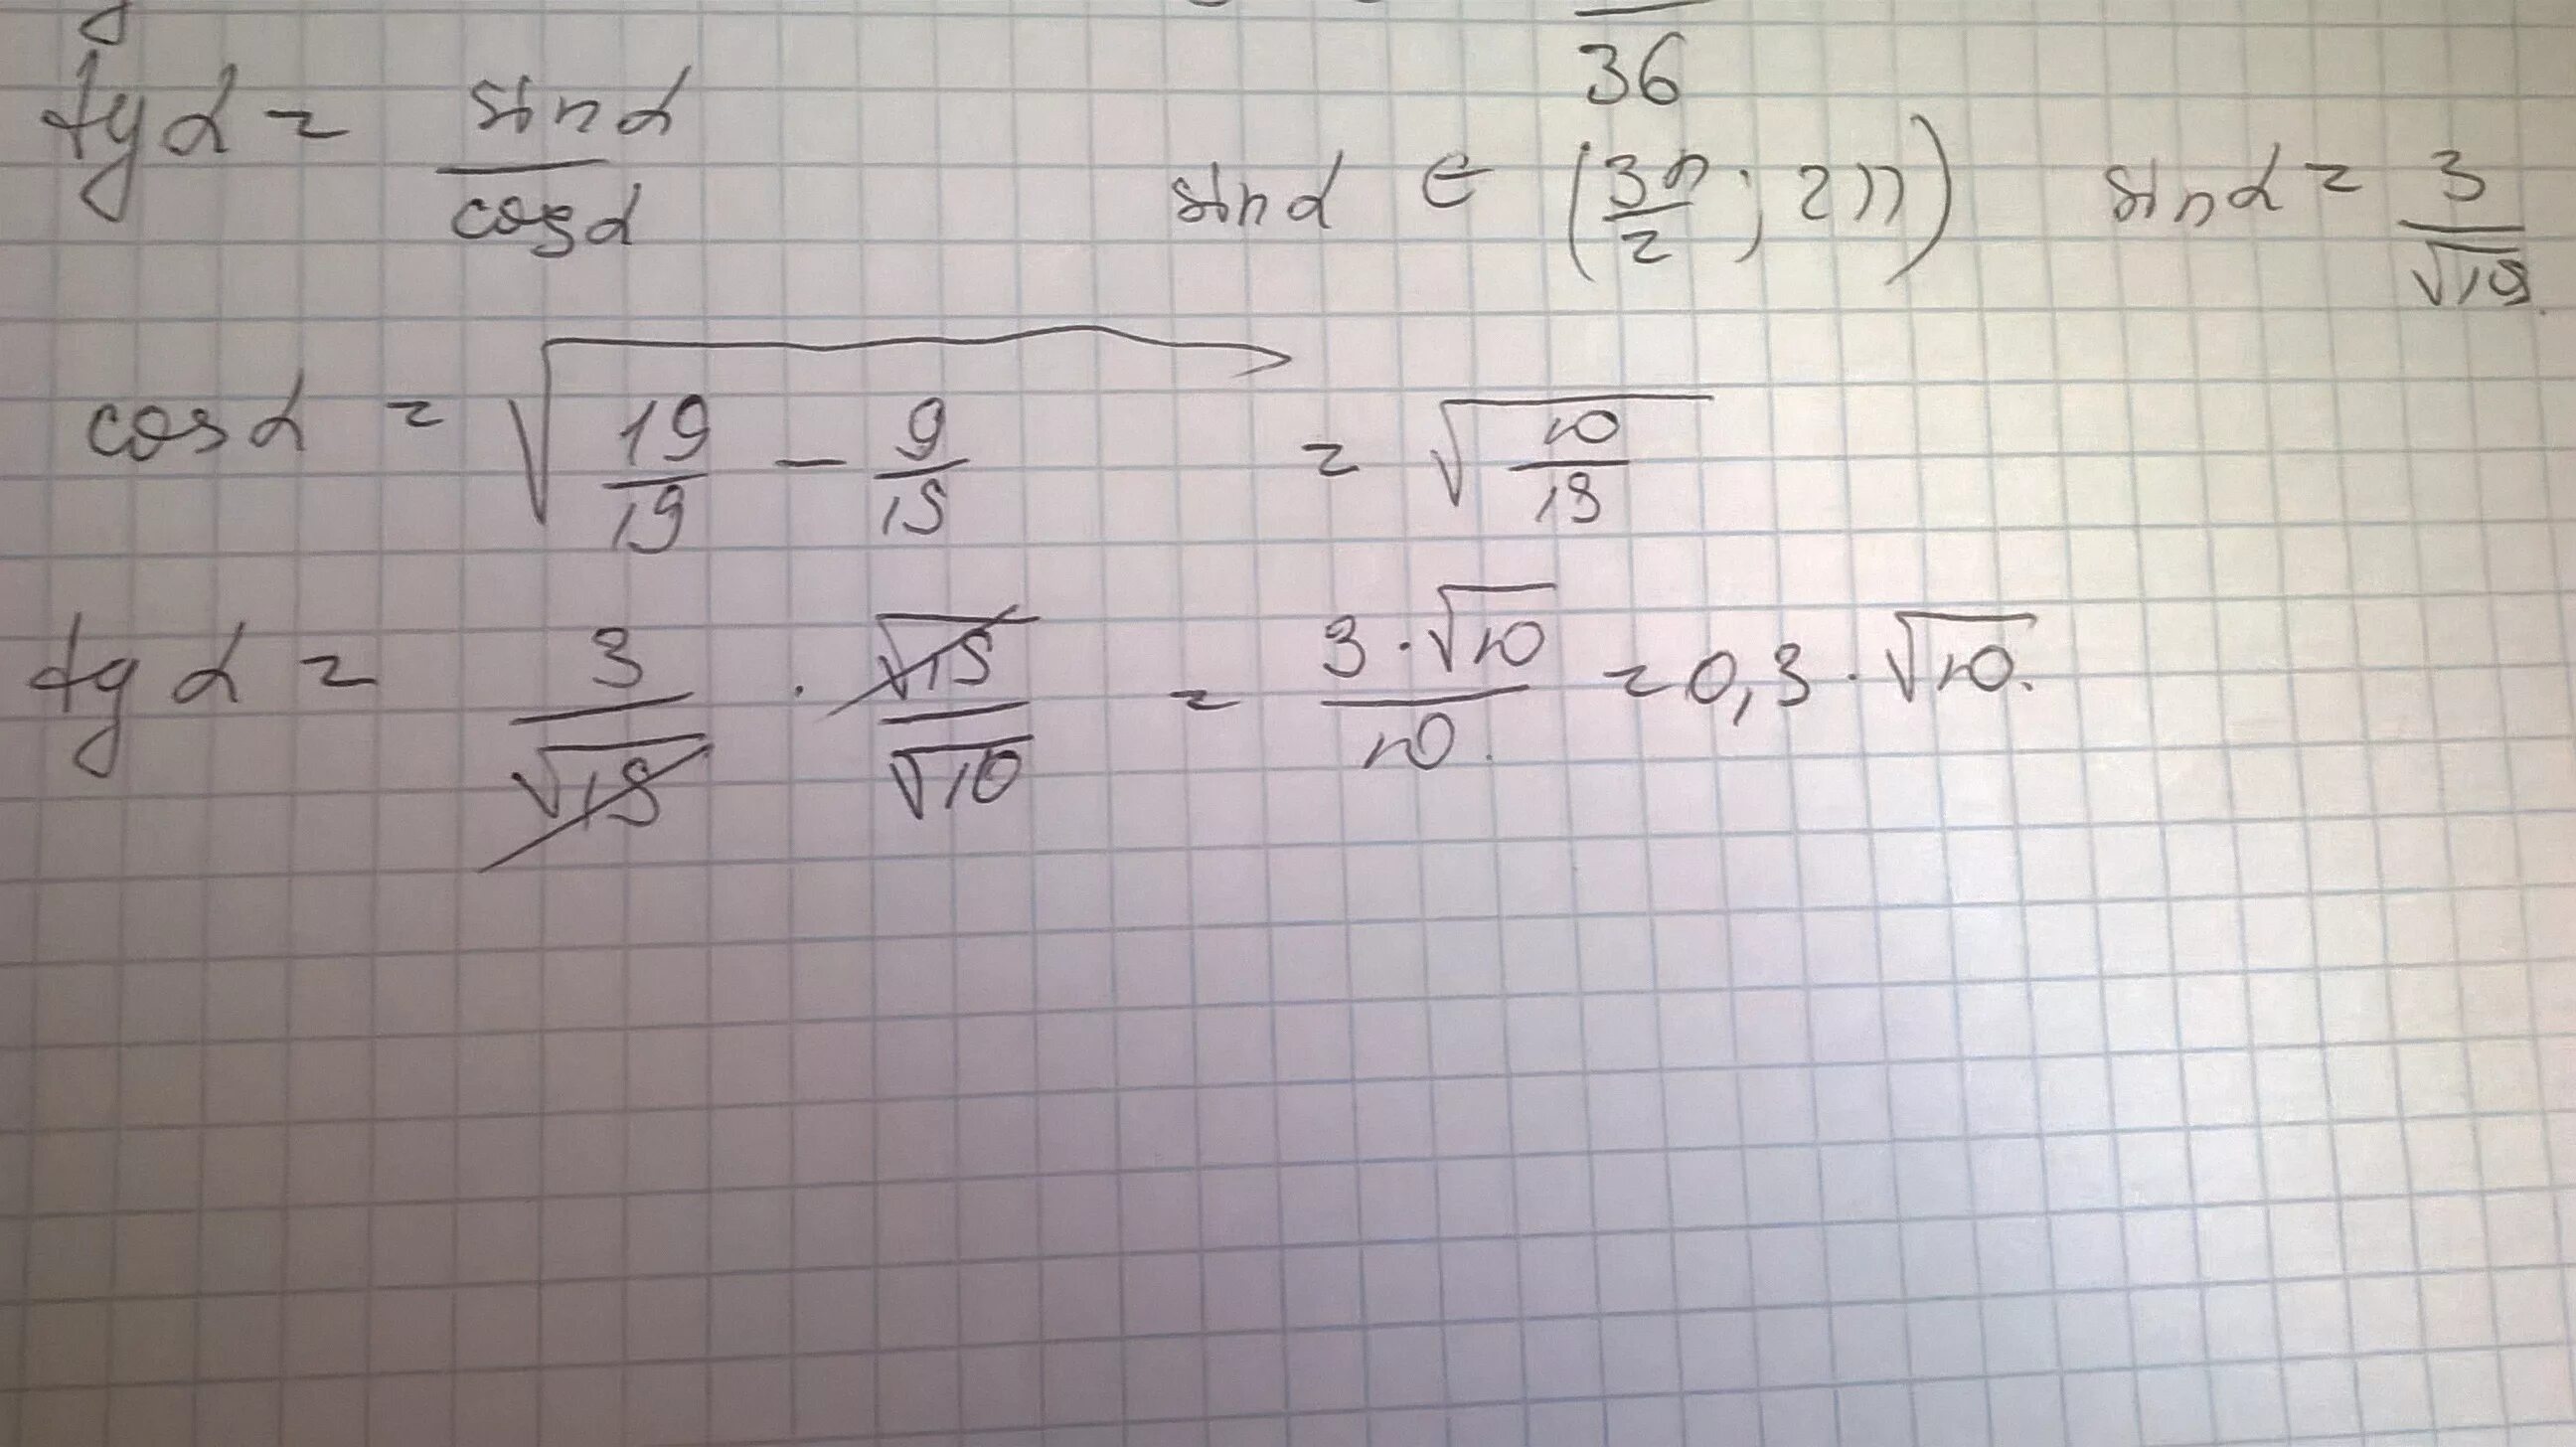 36
tg α = sin α / cos α
sin α ∈ (3π/2; 2π) sin α = 3/√19
cos α = √(19/19 - 9/19) = √(10/19)
tg α = 3/√19 · √19/√10 = 3·√10/10. = 0,3·√10.